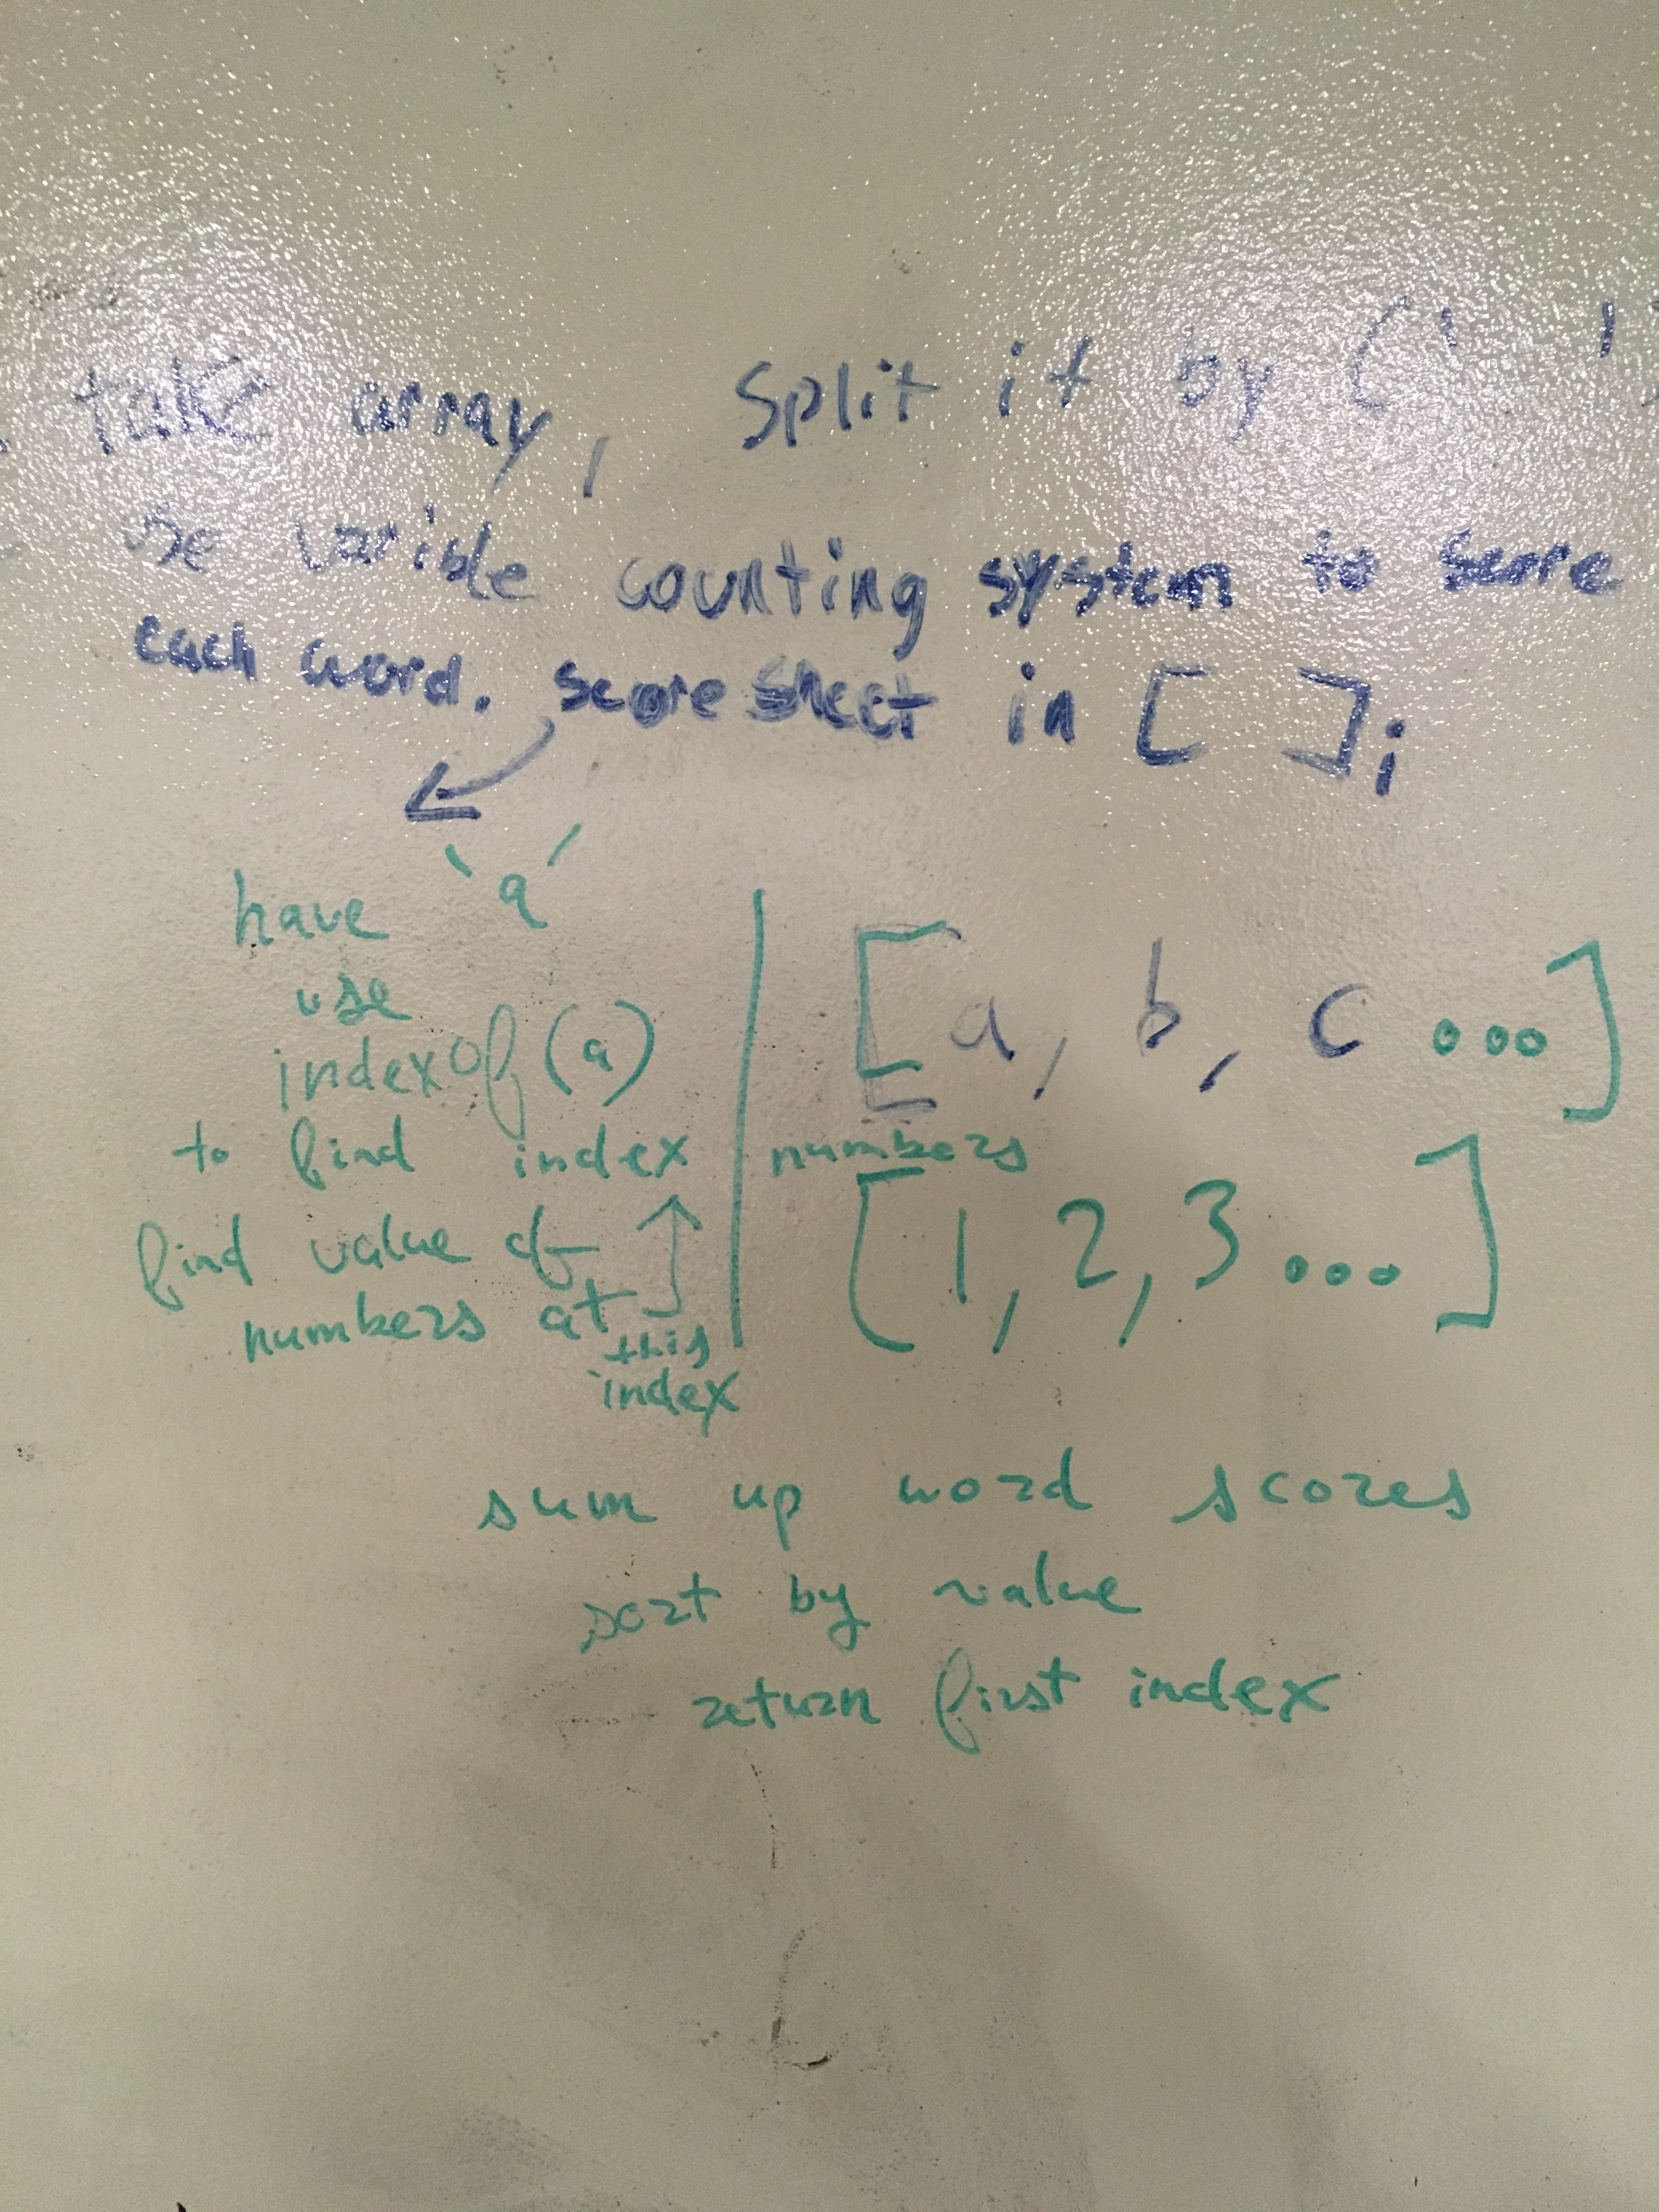 take array, Split it by (' '
use varible counting system to score
each word. score sheet in [ ];
have `a´
use
indexOf(a)
to find index
find value of
numbers at
this
index
[a, b, c ...]
numbers
[1, 2, 3 ...]
sum up word scores
sort by value
return first index